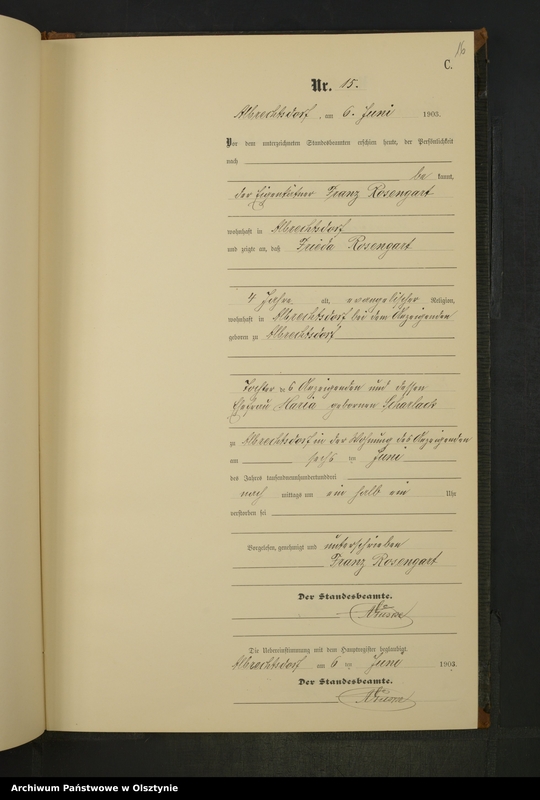 16
C.
Nr. 15.
Albrechtsdorf, am 6. Juni 1903.
Vor dem unterzeichneten Standesbeamten erschien heute, der Persönlichkeit
nach
be kannt,
der Eigentümer Franz Rosengart
wohnhaft in Albrechtsdorf
und zeigte an, daß Frieda Rosengart
4 Jahre alt, evangelischer Religion,
wohnhaft in Albrechtsdorf bei dem Anzeigenden
geboren zu Albrechtsdorf
Tochter des Anzeigenden und dessen
Ehefrau Maria geborenen Scharlack
zu Albrechtsdorf in der Wohnung des Anzeigenden
am sechs ten Juni
des Jahres tausendneunhundertunddrei
nach mittags um ein halb ein Uhr
verstorben sei
Vorgelesen, genehmigt und unterschrieben
Franz Rosengart
Der Standesbeamte.
Die Uebereinstimmung mit dem Hauptregister beglaubigt.
Albrechtsdorf am 6 ten Juni 1903.
Der Standesbeamte.
Archiwum Państwowe w Olsztynie